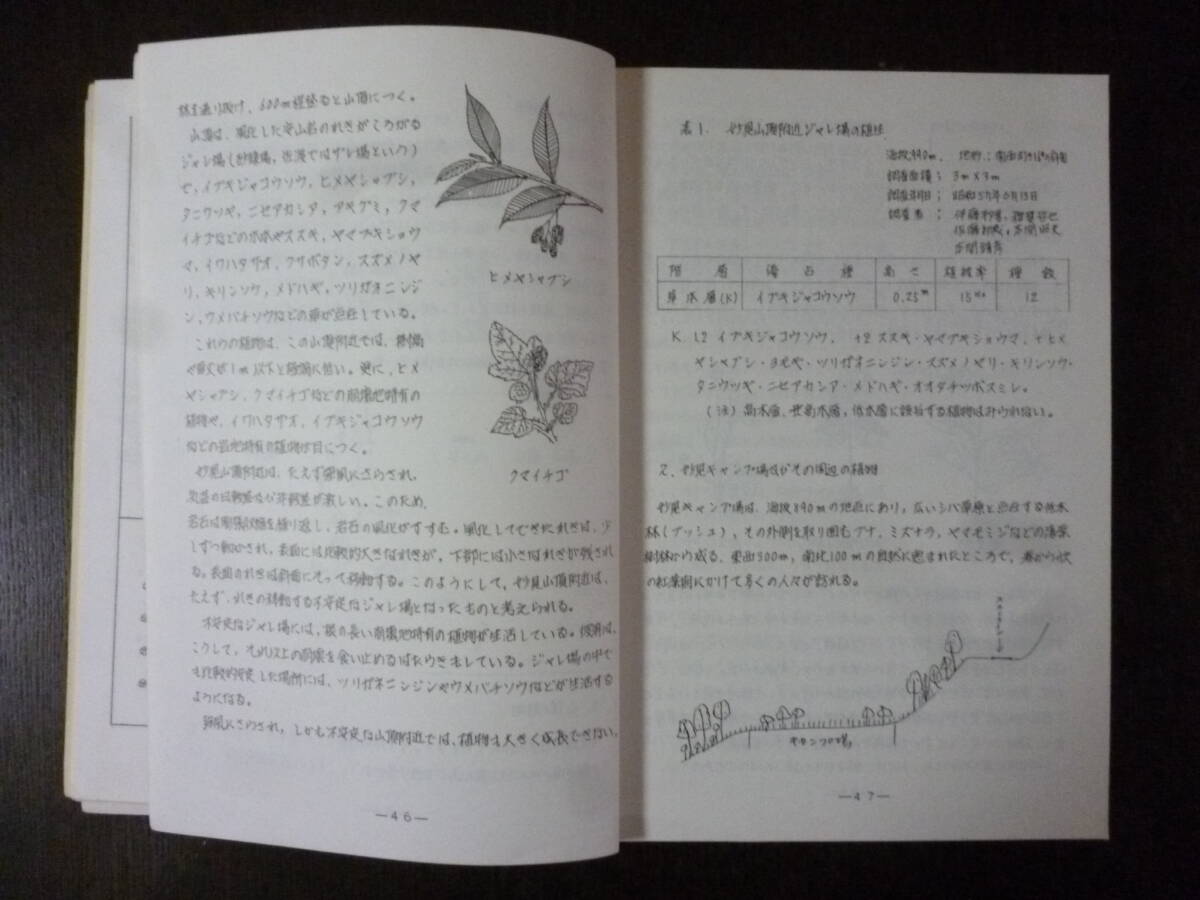 林を通り抜け、600m程登ると山頂につく。
山頂は、風化した安山岩のれきがころがる
ジャレ場(砂礫場,佐渡ではザレ場という)
で,イブキジャコウソウ,ヒメヤシャブシ,
タニウツギ,ニセアカシア,アキグミ,クマ
イチゴなどの木本やススキ,ヤマブキショウ
マ,イワハタザオ,クサボタン,スズメノヤ
リ,キリンソウ,メドハギ,ツリガネニンジ
ン,ウメバチソウなどの草が点在している。
これらの植物は、この山頂附近では、樹高
や草丈が1m以下と極端に低い。更に,ヒメ
ヤシャブシ,クマイチゴなどの崩壊地特有の
植物や,イワハタザオ,イブキジャコウソウ
などの岩地特有の植物が目につく。
妙見山頂附近は、たえず強風にさらされ,
気温の日較差及び年較差が激しい。このため,
岩石は膨張収縮を繰り返し,岩石の風化がすすむ。風化してできたれきは,少
しずつ動かされ,表面には比較的大きなれきが,下部には小さなれきが残され
る。表面のれきは斜面にそって移動する。このようにして,妙見山頂附近は,
たえず,れきの移動する不安定なジャレ場となったものと考えられる。
不安定なジャレ場には,根の長い崩壊地特有の植物が生活している。彼等は,
こうして,それ以上の崩壊を食い止めるはたらきをしている。ジャレ場の中で
も比較的安定した場所には,ツリガネニンジンやウメバチソウなどが生活する
ようになる。
強風にさらされ,しかも不安定な山頂附近では,植物は大きく成長できない。
ヒメヤシャブシ
クマイチゴ
—46—
表1. 妙見山頂附近ジャレ場の植生
海抜940m, 地形;南西
調査面積; 3m×3m
調査期日; 昭和57年6月13日
調査者; 伊藤
階層 優占種 高さ 植被率 種数
草本層(K) イブキジャコウソウ 0.25m 15% 12
K. 1.2 イブキジャコウソウ, +.2 ススキ・ヤマブキショウマ, + ヒメ
ヤシャブシ・ヨモギ・ツリガネニンジン・スズメノヤリ・キリンソウ・
タニウツギ・ニセアカシア・メドハギ・オオタチツボスミレ。
(注) 高木層,亜高木層,低木層に該当する植物はみられない。
2. 妙見キャンプ場及びその周辺の植物
妙見キャンプ場は,海抜840mの地点にあり,広いシバ草原と点在する低木
林(ブッシュ),その外側を取り囲むブナ,ミズナラ,ヤマモミジなどの落葉
樹林から成る,東西500m,南北100mの自然に恵まれたところで,春から秋
の紅葉期にかけて多くの人々が訪れる。
キャンプ場
—47—